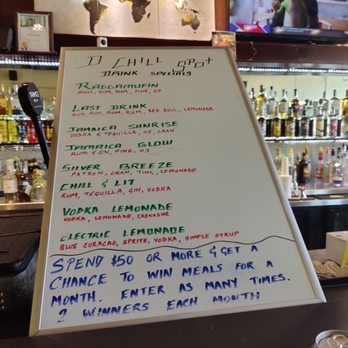 D CHILL SPOT
DRINK SPECIALS
RAGGAMUFIN
RUM, RUM, RUM, PINE, OJ
LAST DRINK
RUM, RUM, RUM, RUM, RED BULL, LEMONADE
JAMAICA SUNRISE
VODKA & TEQUILLA, OJ, CRAN
JAMAICA GLOW
RUM & GIN, PINE, OJ
SILVER BREEZE
PATRON, CRAN, TING, LEMONADE
CHILL & LIT
RUM, TEQUILLA, GIN, VODKA
VODKA LEMONADE
VODKA, LEMONADE, GRENADINE
ELECTRIC LEMONADE
BLUE CURACAO, SPRITE, VODKA, SIMPLE SYRUP
SPEND $50 OR MORE & GET A
CHANCE TO WIN MEALS FOR A
MONTH. ENTER AS MANY TIMES.
2 WINNERS EACH MONTH